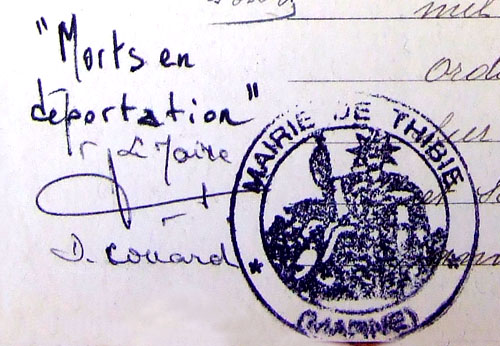 mil
"Morts en
Ord
déportation"
Le Maire
D. Couard
MAIRIE DE THIBIE
(MARNE)